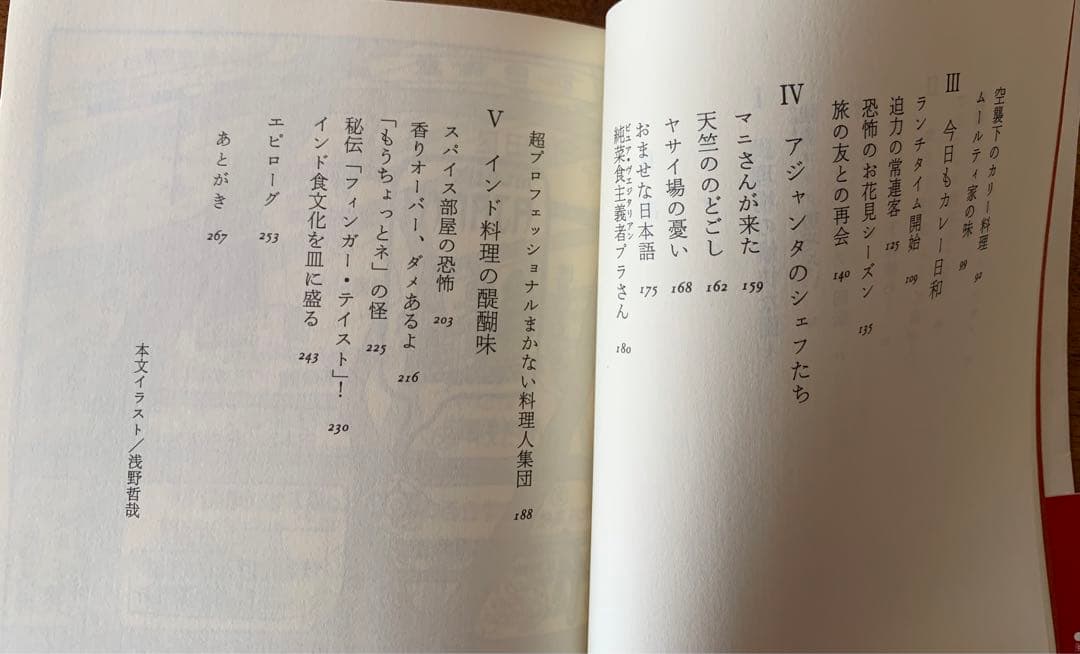 空襲下のカリー料理 92
ムールティ家の味 99
III 今日もカレー日和
ランチタイム開始 109
迫力の常連客 125
恐怖のお花見シーズン 135
旅の友との再会 140
IV アジャンタのシェフたち
マニさんが来た 159
天竺ののどごし 162
ヤサイ場の憂い 168
おませな日本語 175
ピュア・ヴェジタリアン
純菜食主義者プラさん 180
超プロフェッショナルまかない料理人集団 188
V インド料理の醍醐味
スパイス部屋の恐怖 203
香りオーバー、ダメあるよ 216
「もうちょっとネ」の怪 225
秘伝「フィンガー・テイスト」! 230
インド食文化を皿に盛る 243
エピローグ 253
あとがき 267
本文イラスト/浅野哲哉